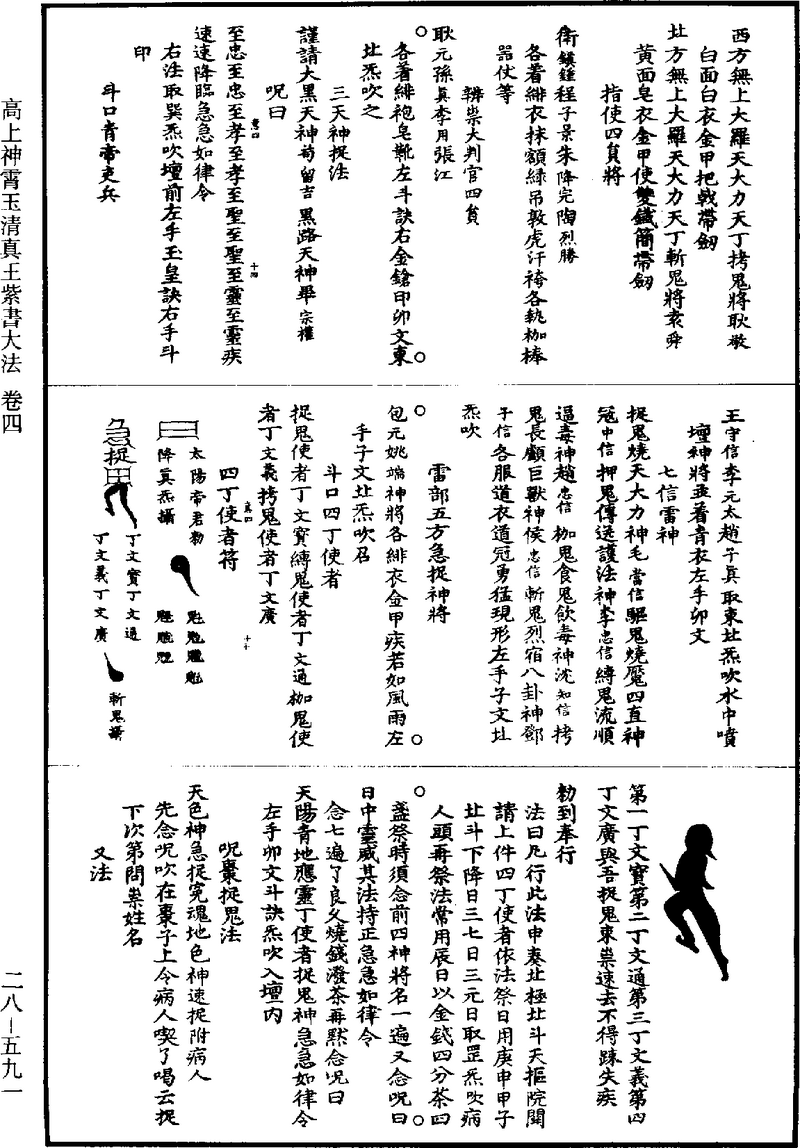 西方無上大羅天大力天丁拷鬼將耿敬
白面白衣金甲把戟帶劔
北方無上大羅天大力天丁斬鬼將袁舜
黃面皂衣金甲使雙鐵簡帶劔
指使四員將
衛鎮鍾程子景朱降完陶烈勝
各着緋衣抹額綠吊敦虎汗袴各執枷棒
器仗等
辨祟大判官四員
耿元孫真李用張江
各着緋袍皂靴左斗訣右金鎗印卯文東
北炁吹之
三天神捉法
謹請大黑天神苟留吉黑路天神畢宗權
呪曰
至忠至忠至孝至孝至聖至聖至靈至靈疾
速速降臨急急如律令
右法取巽炁吹壇前左手玉皇訣右手斗
印
斗口青帝吏兵
王守信李元太趙子真取東北炁吹水中噴
壇神將並着青衣左手卯文
七信雷神
捉鬼燒天大力神毛當信驅鬼燒魘四直神
冠中信押鬼傳送護法神李忠信縛鬼流順
逼毒神趙忠信枷鬼食鬼飲毒神沈知信拷
鬼長顱巨獸神侯忠信斬鬼烈宿八卦神鄧
子信各服道衣道冠勇猛現形左手子文北
炁吹
雷部五方急捉神將
包元姚端神將各緋衣金甲疾若如風雨左
手子文北炁吹召
斗口四丁使者
捉鬼使者丁文寶縛鬼使者丁文通枷鬼使
者丁文義拷鬼使者丁文廣
四丁使者符
太陽帝君勑
降真炁攝
急捉
丁文寶丁文通
丁文義丁文廣
斬鬼攝
第一丁文寶第二丁文通第三丁文義第四
丁文廣與吾捉鬼束祟速去不得踈失疾
勑到奉行
法曰凡行此法申奏北極北斗天樞院關
請上件四丁使者依法祭日用庚申甲子
北斗下降日三七日三元日取罡炁吹病
人頭再祭法常用辰日以金錢四分茶四
盞祭時須念前四神將名一遍又念呪曰
日中靈威其法持正急急如律令
念七遍了良久燒錢潑茶再黙念呪曰
天陽青地應靈丁使者捉鬼神急急如律令
左手卯文斗訣炁吹入壇内
呪棗捉鬼法
天色神急捉寃魂地色神速捉附病人
先念呪吹在棗子上令病人喫了喝云捉
下次第問祟姓名
又法
高上神霄玉清真王紫書大法 卷四
二八－五九一